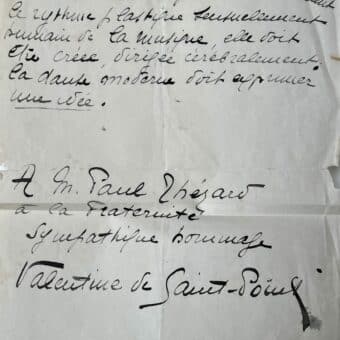 le rythme plastique sensuellement
humain de la musique, elle doit
être créée, dirigée cérébralement,
la danse moderne doit exprimer
une idée.
A M. Paul Thézard
à la Fraternité
Sympathique hommage
Valentine de Saint-Point